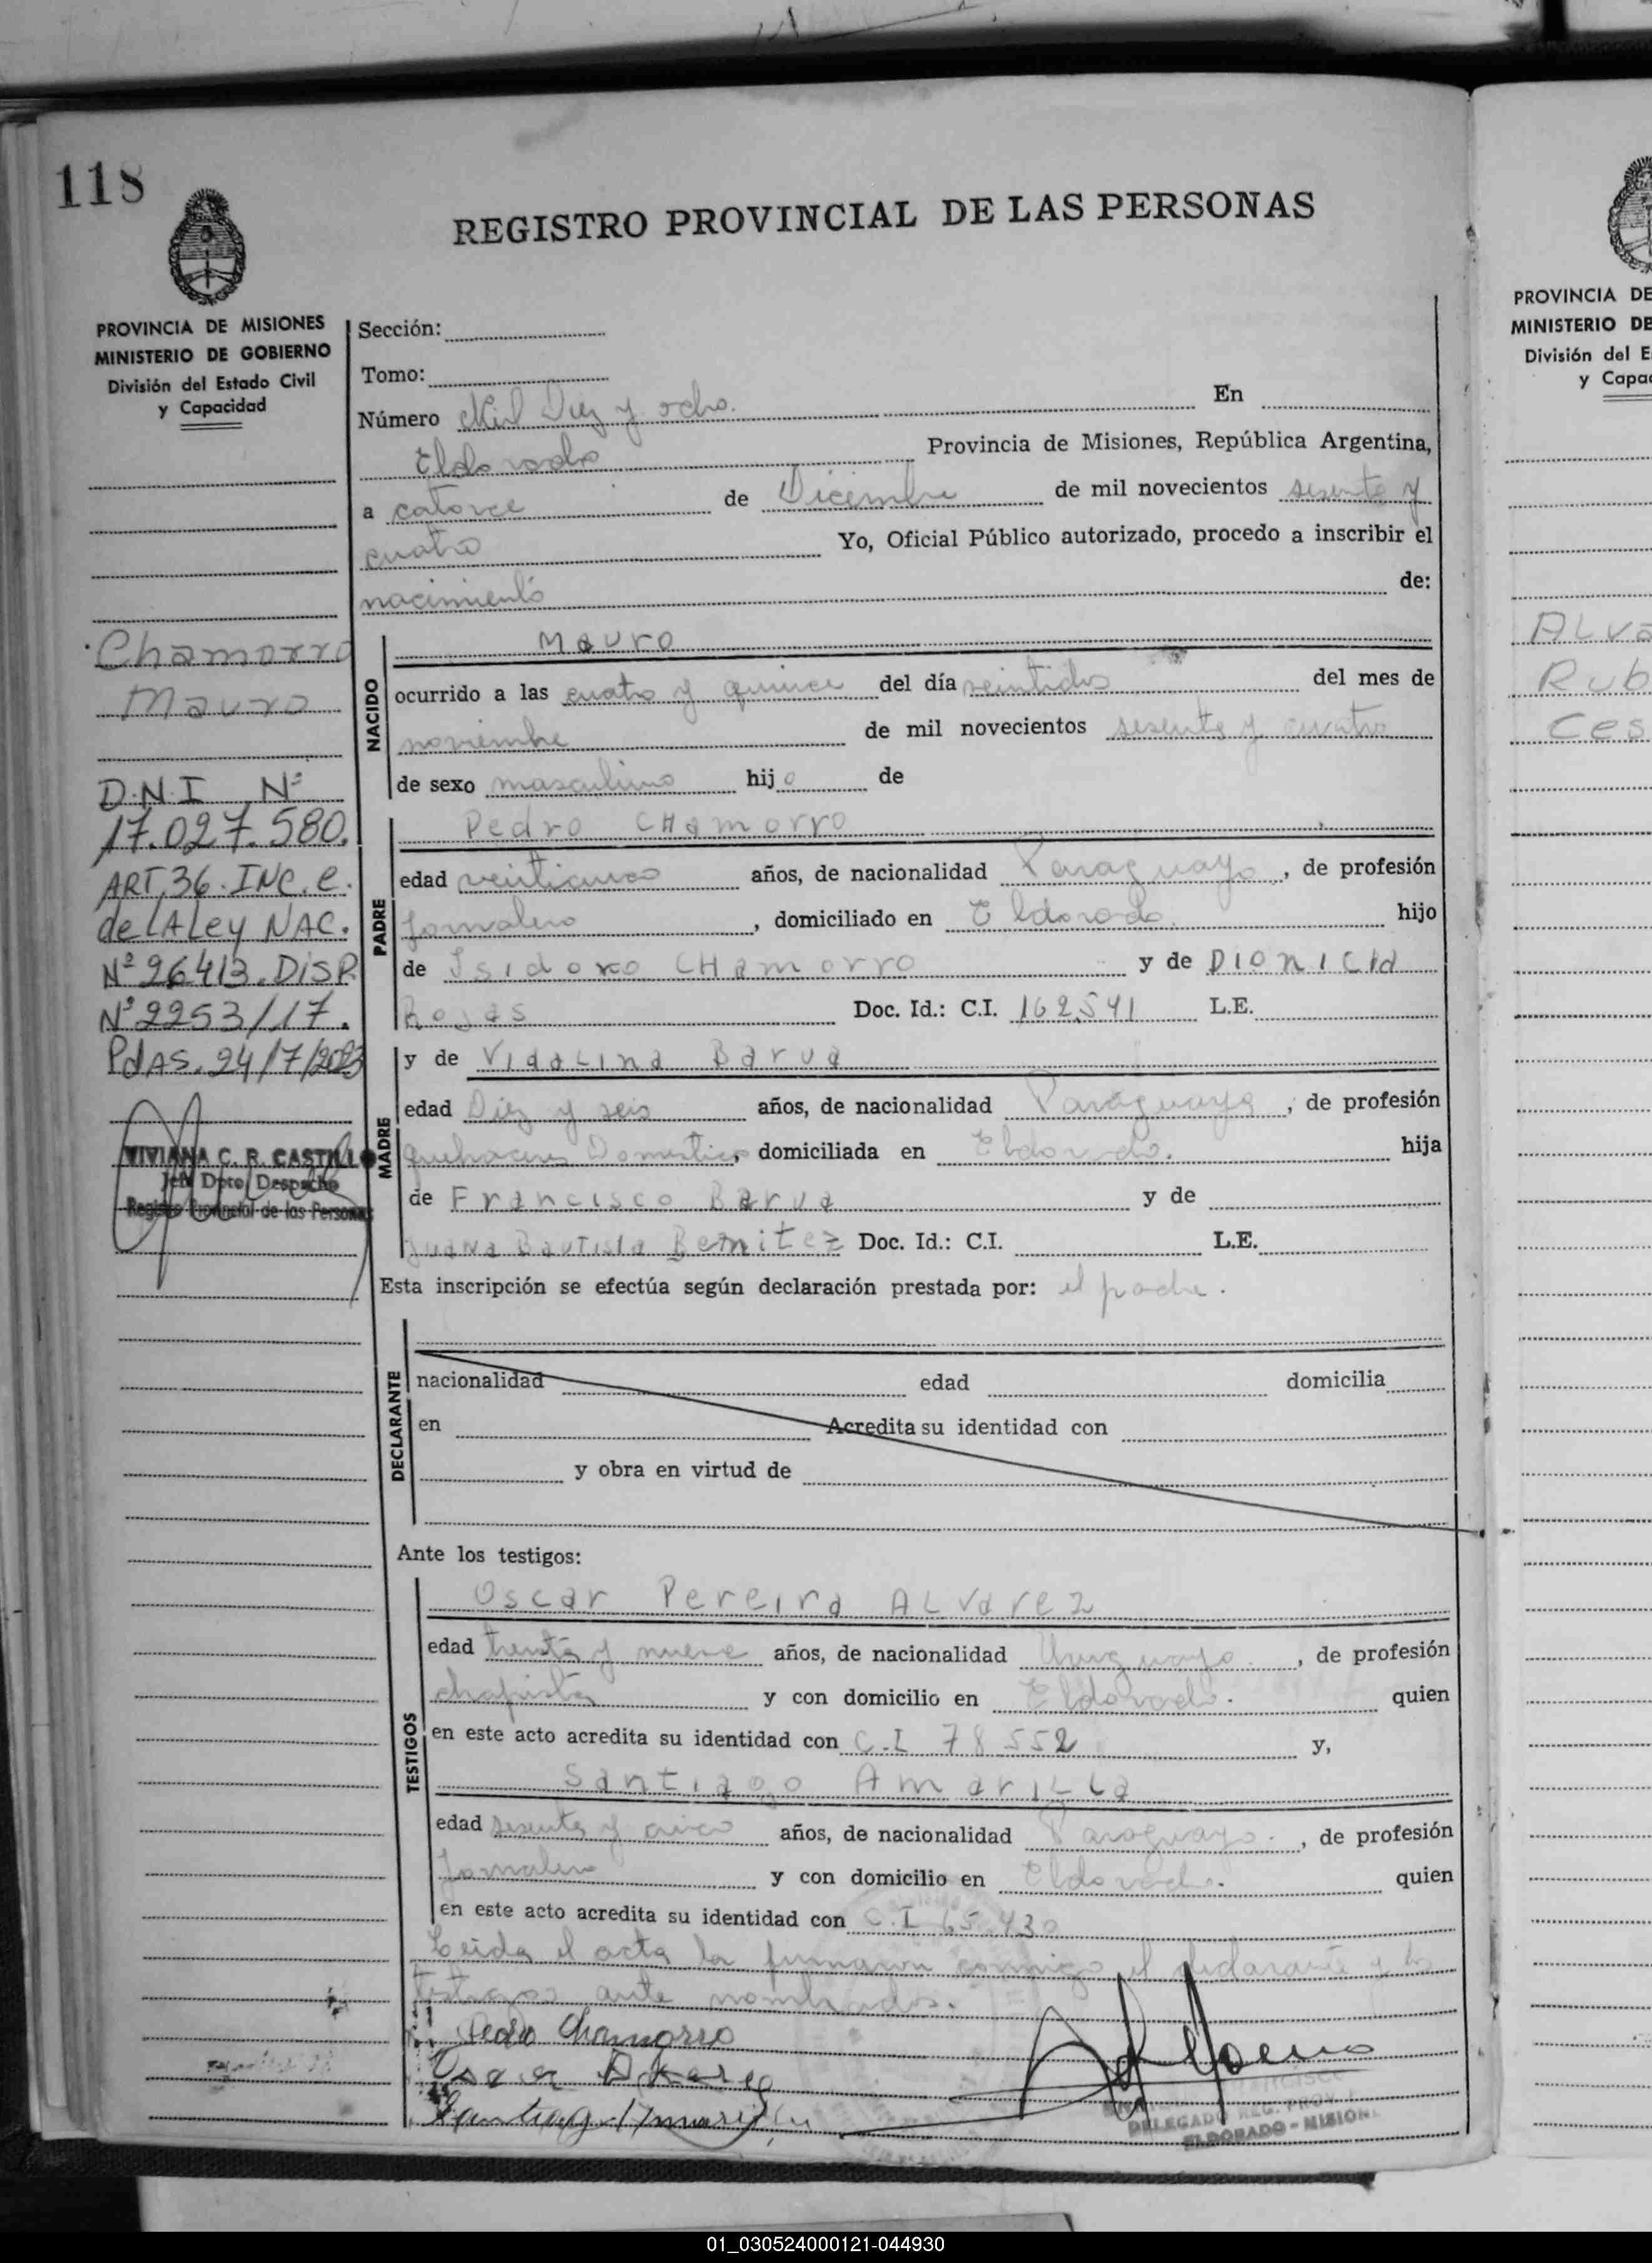 118
REGISTRO PROVINCIAL DE LAS PERSONAS
PROVINCIA DE MISIONES
MINISTERIO DE GOBIERNO
División del Estado Civil
y Capacidad
Chamorro
Mauro
D.N.I Nº
17.027.580.
ART.36.INC.e.
de LA Ley NAC.
Nº 26413.DISP.
Nº 2253/17.
PdAS. 24/7/2023
VIVIANA C. R. CASTILLO
Jefe Dpto. Despacho
Registro Provincial de las Personas
Sección:
Tomo:
Número Mil Diez y ocho. En
Eldorado Provincia de Misiones, República Argentina,
a catorce de Diciembre de mil novecientos sesenta y
cuatro Yo, Oficial Público autorizado, procedo a inscribir el
nacimiento de:
NACIDO
Mauro
ocurrido a las cuatro y quince del día veintidos del mes de
noviembre de mil novecientos sesenta y cuatro
de sexo masculino hijo de
PADRE
Pedro CHamorro
edad veinticinco años, de nacionalidad Paraguaya, de profesión
Jornalero, domiciliado en Eldorado. hijo
de Isidoro CHamorro y de DIONICIA
Rojas Doc. Id.: C.I. 162.541 L.E.
MADRE
y de VidaLina Barua
edad Diez y seis años, de nacionalidad Paraguaya, de profesión
Quehaceres Domesticos, domiciliada en Eldorado. hija
de Francisco Barua y de
Juana Bautista Benitez Doc. Id.: C.I. L.E.
Esta inscripción se efectúa según declaración prestada por: el padre.
DECLARANTE
nacionalidad edad domicilia
en Acredita su identidad con
y obra en virtud de
Ante los testigos:
TESTIGOS
Oscar Pereira ALvarez
edad treinta y nueve años, de nacionalidad Uruguayo., de profesión
chapista y con domicilio en Eldorado. quien
en este acto acredita su identidad con C.I 78.552 y,
Santiago AmariLLa
edad sesenta y cinco años, de nacionalidad Paraguayo., de profesión
Jornalero y con domicilio en Eldorado. quien
en este acto acredita su identidad con C.I 65.430
Leida el acta la firmaron conmigo el declarante y los
testigos ante nombrados.
Pedro Chamorro
Oscar Alvarez
Santiago Amarilla
DELEGADO REG. PROV.
ELDORADO - MISIONES
PROVINCIA DE
MINISTERIO DE
División del E
y Capac
ALva
Rub
Ces
01_030524000121-044930